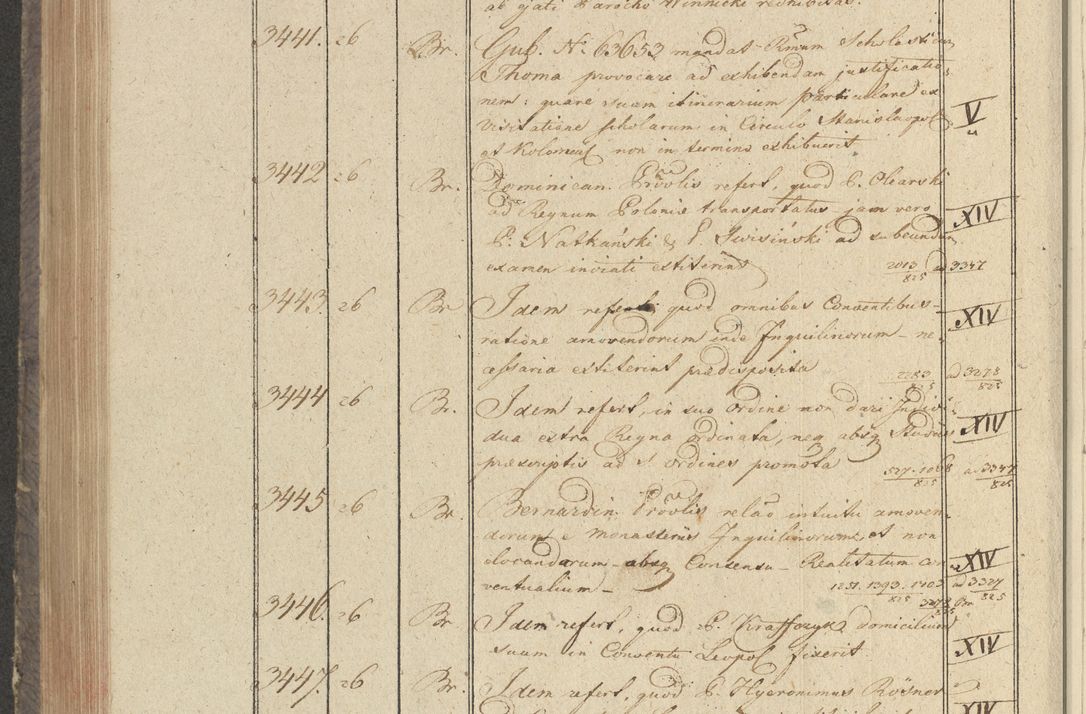 ab gati Parocho Winnicki redhibitas.
3441. 26 Br. Gub. No 63653 mandat Rmum Scholasticum
Thoma provocare ad exhibendam justificatio-
nem: quare suam itinerarium particulare ex
visitatione scholarum in Circulo Stanislaopol V
et Kolomeæ non in termino exhibuerit
3442 26 Br. Dominican. Provlis refert, quod P. Olearski
ad Regnum Poloniæ transportatus jam vero XIV
P. Natkański & P. Iwisiński ad subeundum
examen inviati extiterint 2013/825 ad 3347
3443. 26 Br. Idem refert, quod omnibus Conventibus XIV
ratione amovendorum inde Inquilinorum ne-
cessaria extiterint prædisposita 2283/825 ad 3278/825
3444 26 Br. Idem refert, in suo Ordine non dari Indivi-
dua extra Regna ordinata, neq absq Studiis XIV
præscriptis ad S Ordines promota 527. 1068/825 ad 3347/825
3445 26 Br. Bernardin. Provlis relao intuitu amoven-
dorum e Monasteriis Inquilinorum, et non
elocandarum absq Consensu Realitatum Con- XIV
ventualium 1251. 1393. 1703/825 ad 3327/825
3278/825 Br
3446. 26 Br. Idem refert, quod P. Krafforzyk domicilium
suum in Conventu Leopol fixerit XIV
3447. 26 Br. Idem refert, quod P. Hyeronimus Rösner
XIV